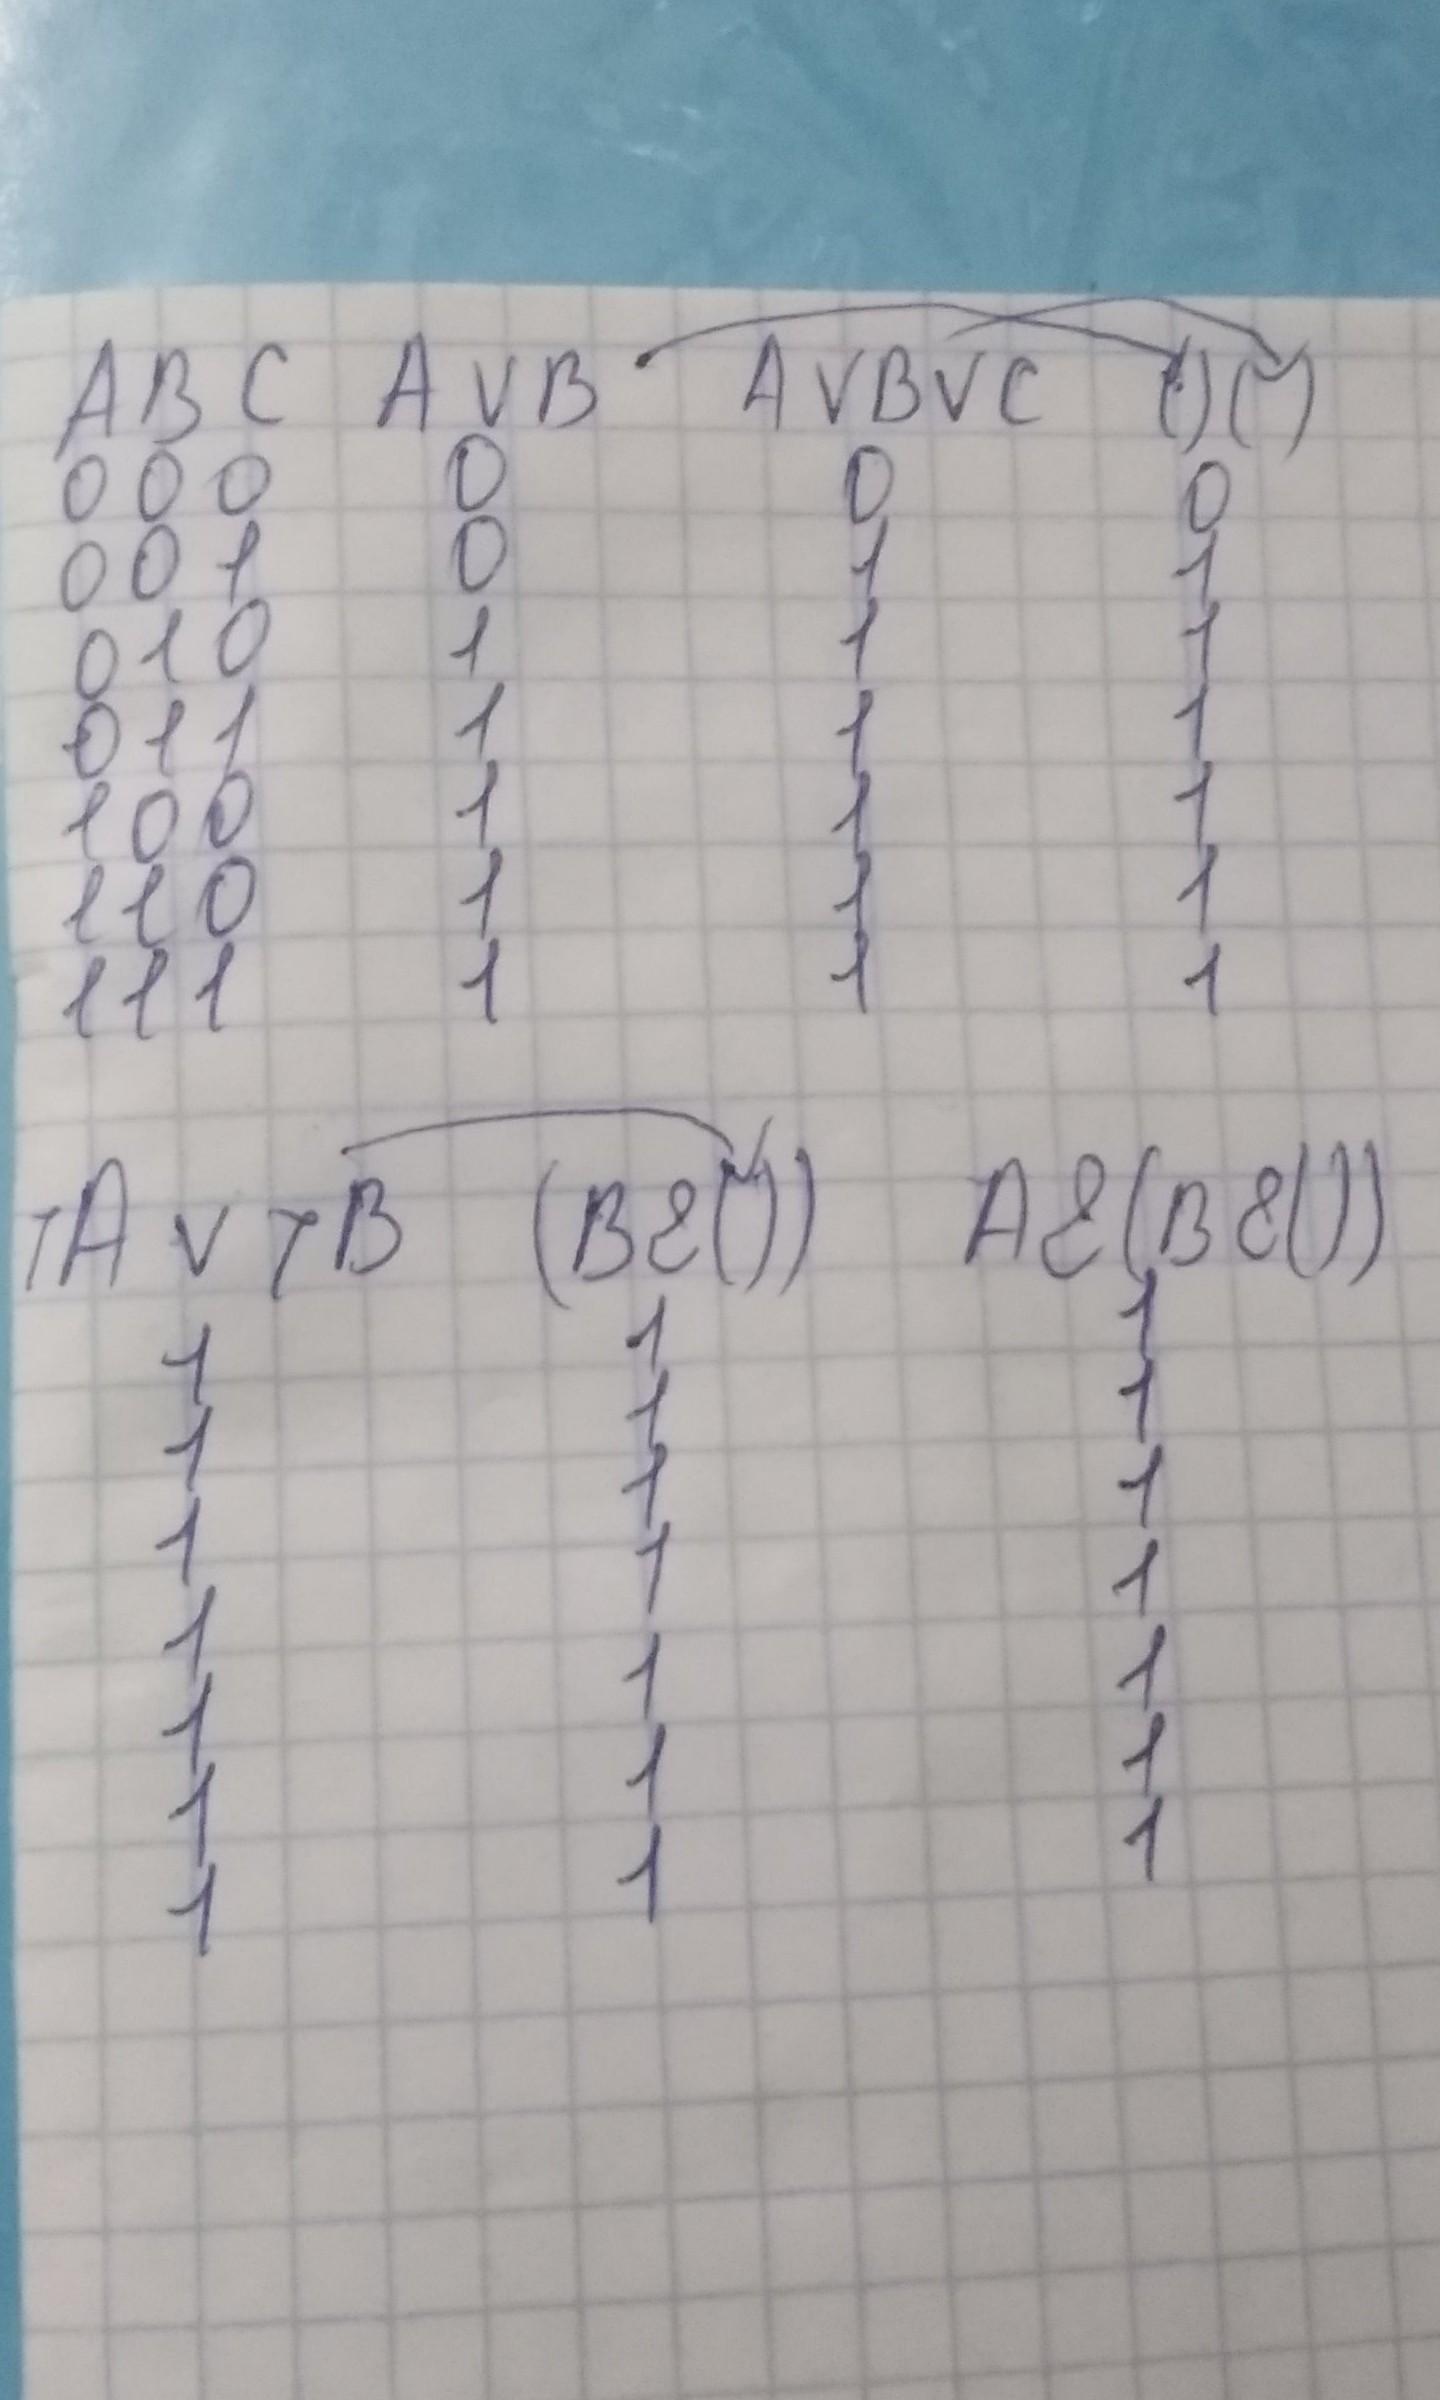 A B C A ∨ B A ∨ B ∨ C ( ) ( )
0 0 0 0 0 0
0 0 1 0 1 1
0 1 0 1 1 1
0 1 1 1 1 1
1 0 0 1 1 1
1 1 0 1 1 1
1 1 1 1 1 1
¬A ∨ ¬B (B & ( )) A & (B & ( ))
1 1 1
1 1 1
1 1 1
1 1 1
1 1 1
1 1 1
1 1 1